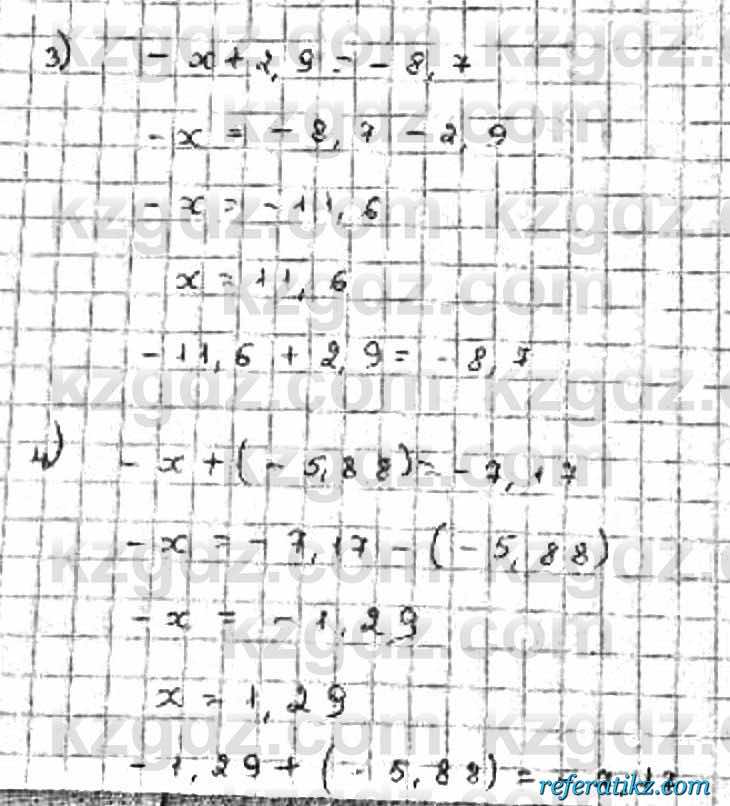 3) - x + 2,9 = - 8,7
- x = - 8,7 - 2,9
- x = - 11,6
x = 11,6
- 11,6 + 2,9 = - 8,7
4) - x + (- 5,88) = - 7,17
- x = - 7,17 - (- 5,88)
- x = - 1,29
x = 1,29
- 1,29 + (- 5,88) = - 7,17
referatikz.com